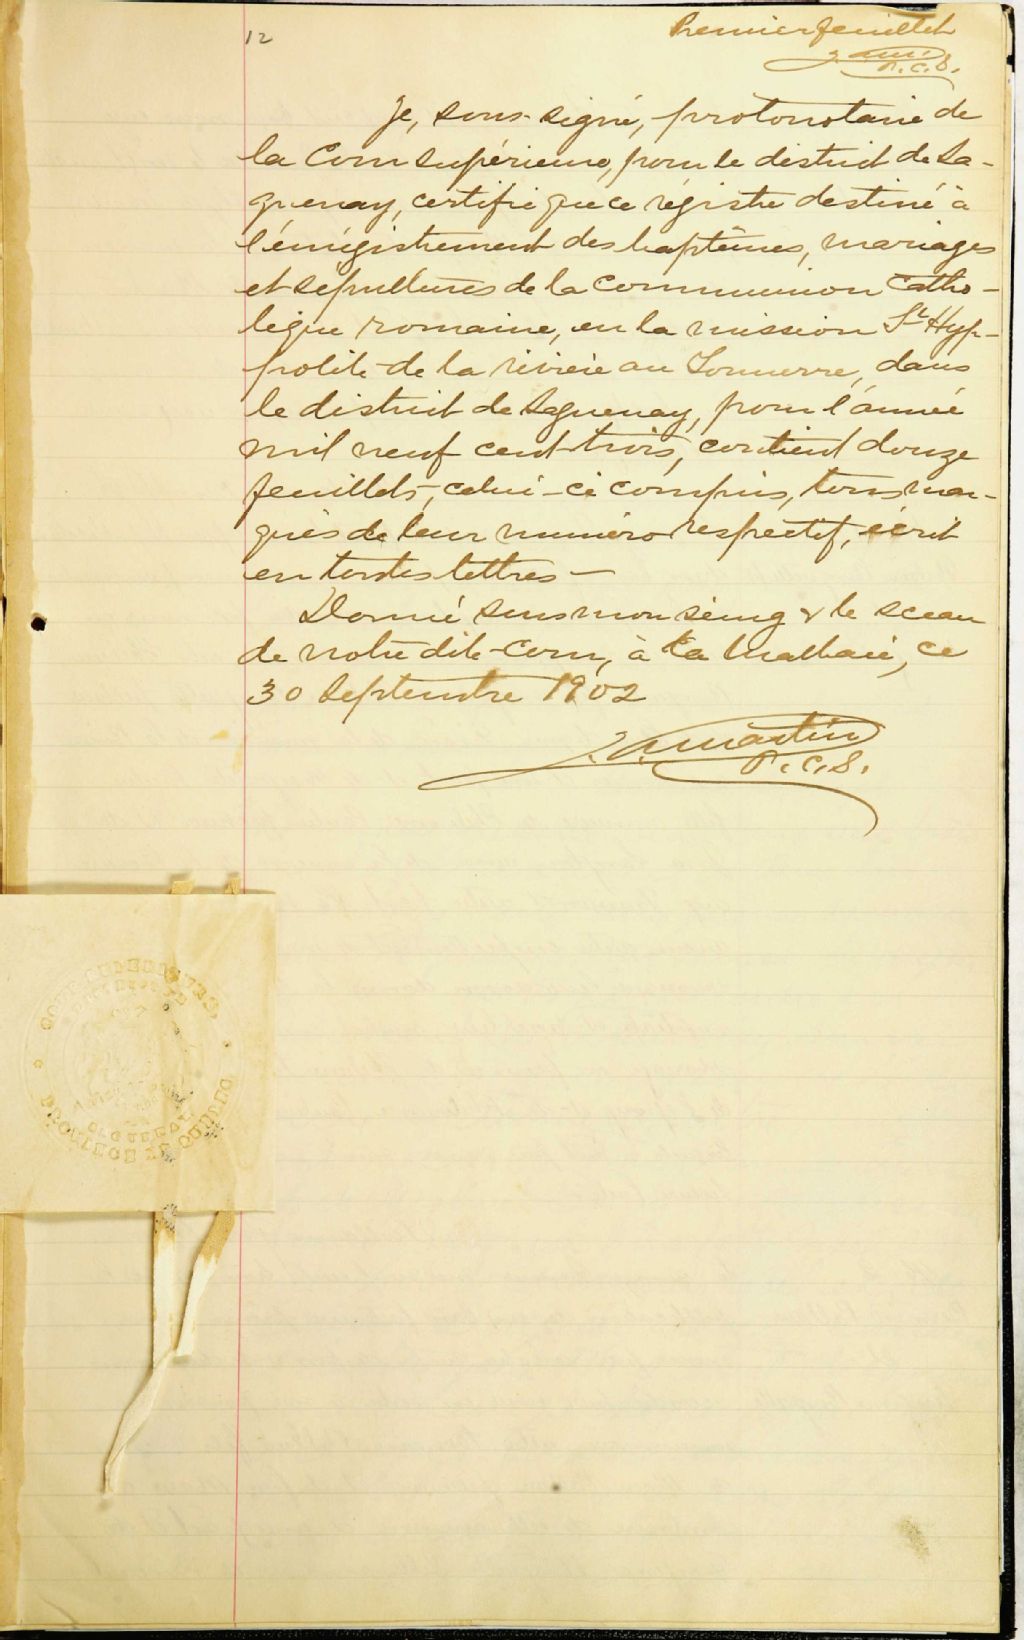 12
Premier feuillet
P.C.S.
Je, sous-signé, protonotaire de
la Cour Supérieure, pour le district de Sa-
guenay, certifie que ce régistre destiné à
l'enrégistrement des baptêmes, mariages
et sépultures de la communion catho-
lique romaine, en la mission St Hyp-
polite de la rivière au Tonnerre, dans
le district de Saguenay, pour l'année
mil neuf cent trois, contient douze
feuillets, celui-ci compris, tous mar-
qués de leur numéro respectif, écrit
en toutes lettres—
Donné sous mon seing & le sceau
de notre dite cour, à la Malbaie, ce
30 Septembre 1902
J. A. Martin
P.C.S.
PROVINCE DE QUEBEC